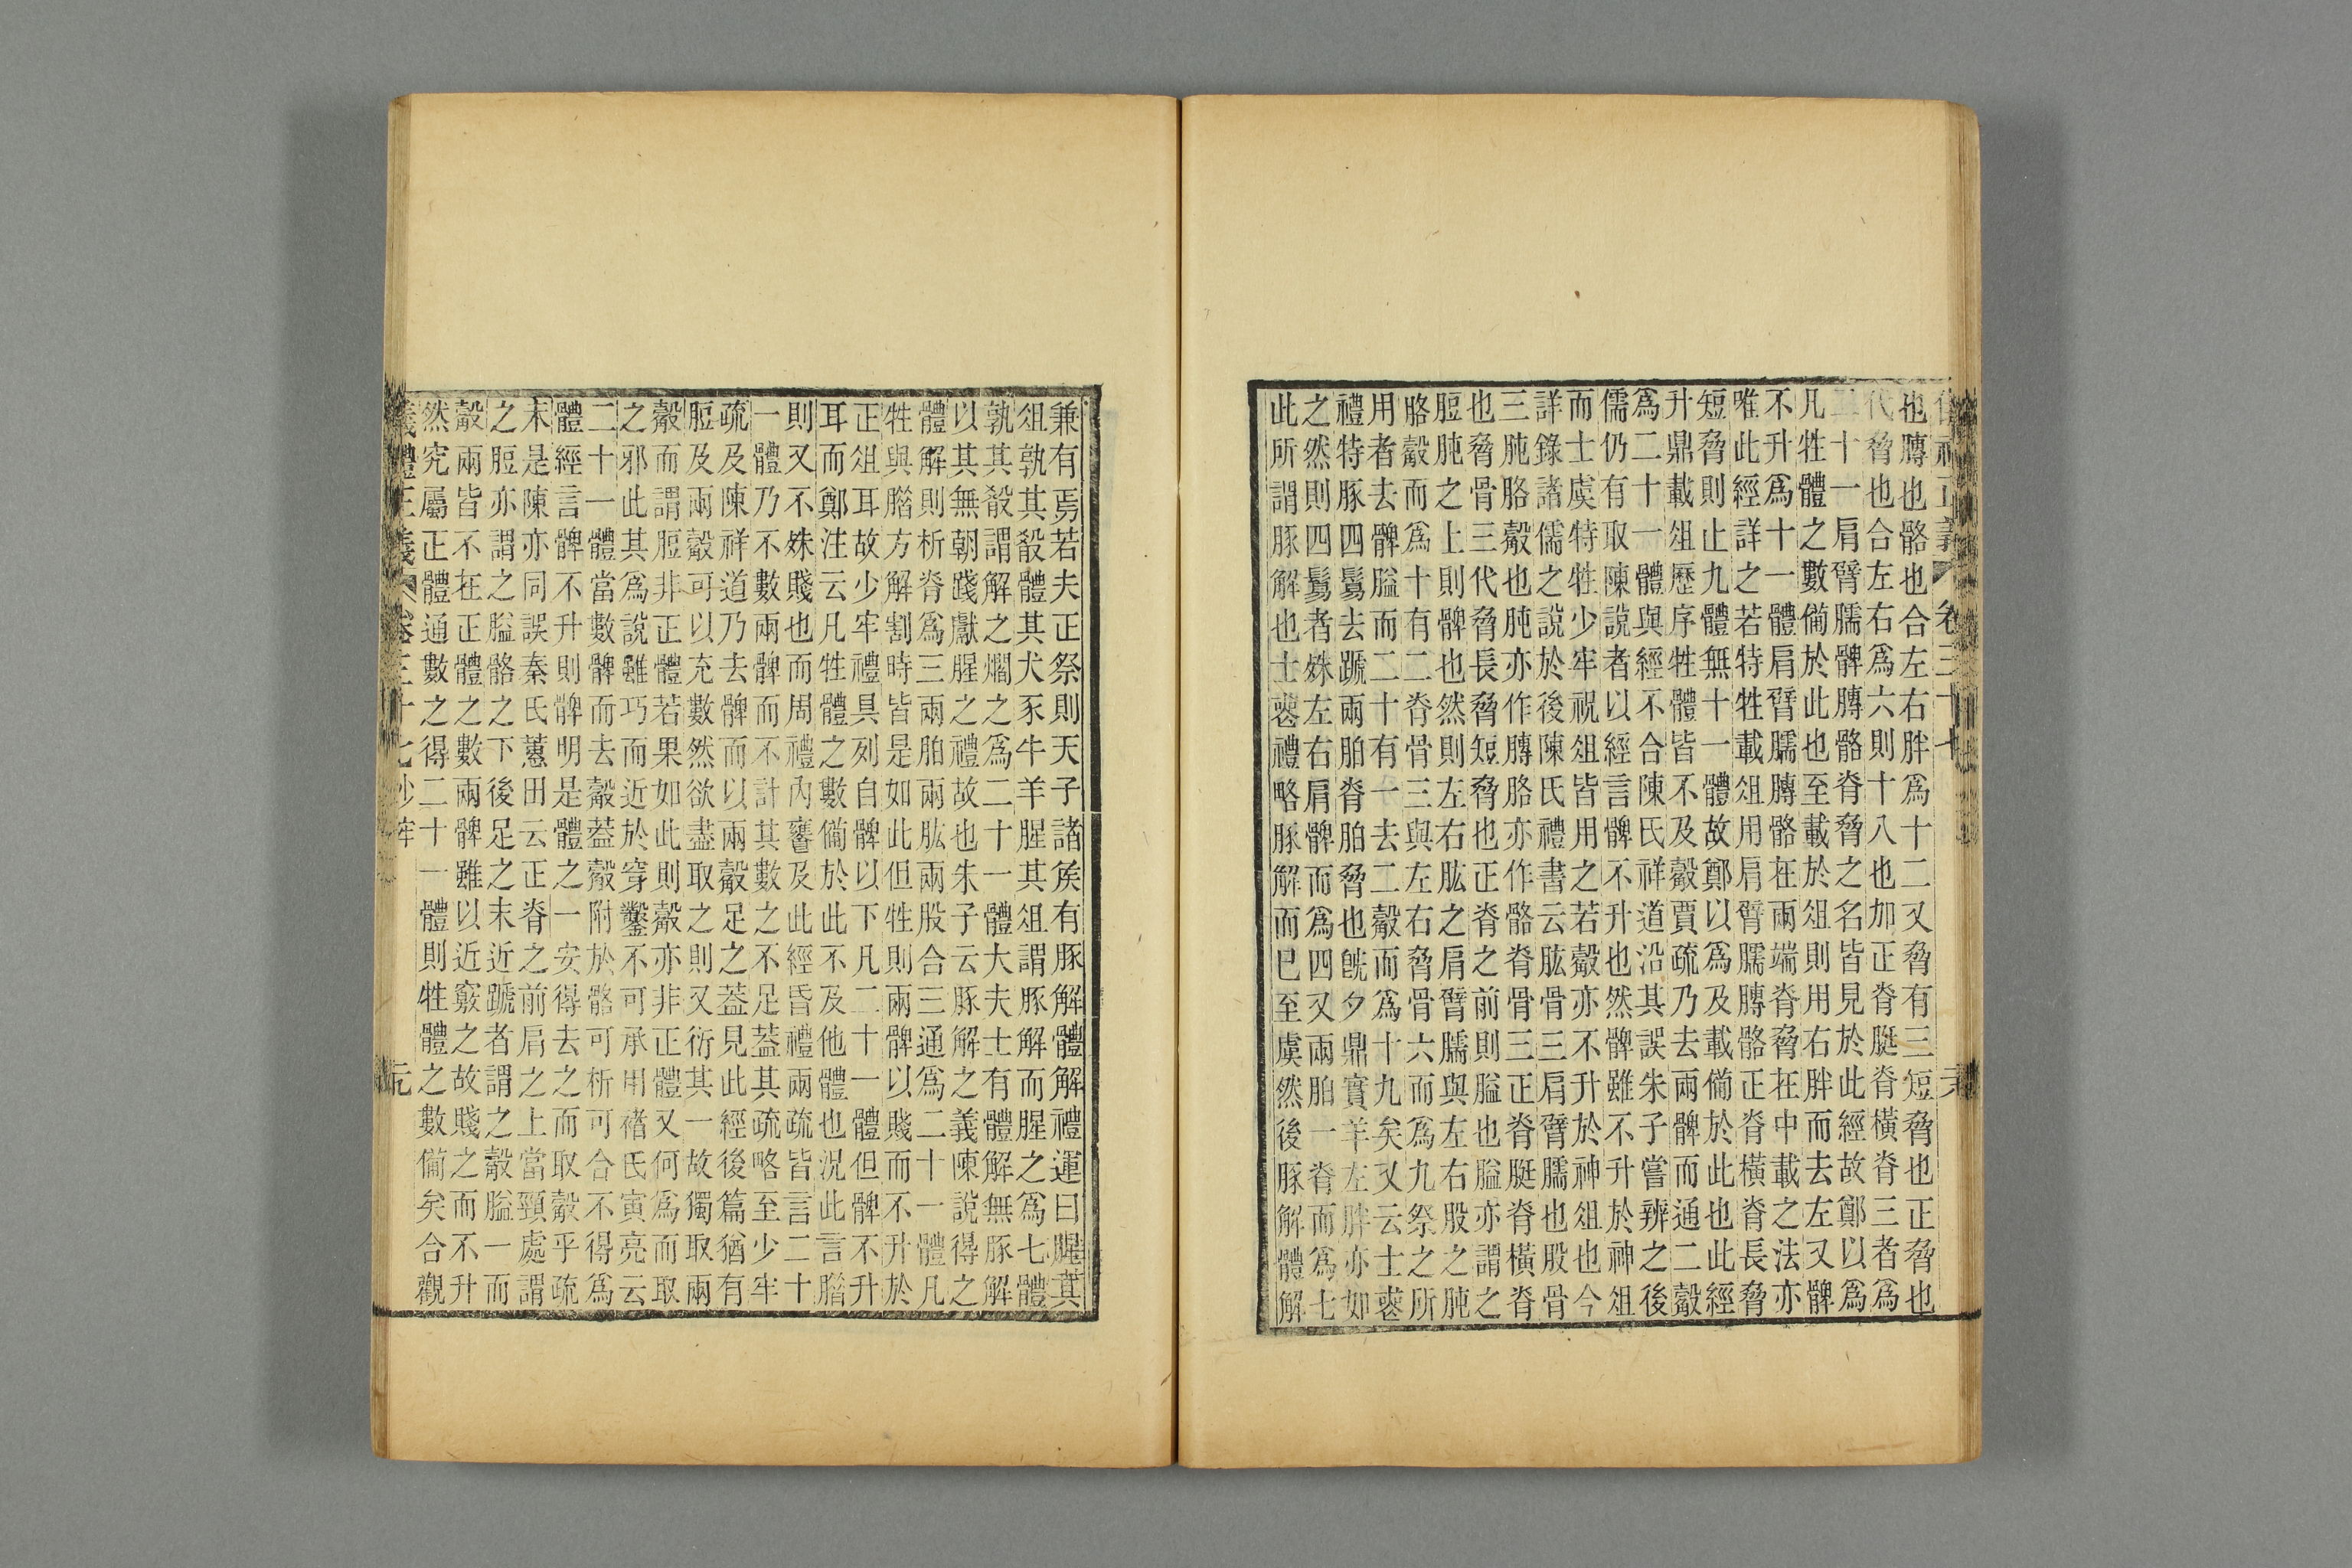 也膊也骼也合左右胖爲十二又脅有三短脅也正脅也
代脅也合左右爲六則十八也加正脊脡脊橫脊三者爲
二十一肩臂臑髀膊骼脊脅之名皆見於此經故鄭以爲
凡牲體之數備於此也至載於俎則用右胖而去左又髀
不升爲十一體肩臂臑膊骼在兩端脊脅在中載之法亦
唯此經詳之若特牲載俎用肩臂臑膊骼正脊橫脊長脅
短脅則止九體無十一體故鄭以爲及載備於此也此經
升鼎載俎歷序牲體皆不及觳賈疏乃去兩髀而通二觳
爲二十一體與經不合陳氏祥道沿其誤朱子嘗辨之後
儒仍有取陳說者以經言髀不升也然髀雖不升於神俎
而士虞特牲少牢祝俎皆用之若觳亦不升於神俎也今
詳錄諸儒之說於後陳氏禮書云肱骨三肩臂臑也股骨
三肫胳觳也肫亦作膊胳亦作骼脊骨三正脊脡脊橫脊
也脅骨三代脅長脅短脅也正脊之前則膉也膉亦謂之
脰肫之上則髀也然則左右肱之肩臂臑與左右股之肫
胳觳而爲十有二脊骨三與左右脅骨六而爲九祭之所
用者去髀膉而二十有一去二觳而爲十九矣又云士喪
禮特豚四鬄去蹏兩胉脊胉脅也旣夕鼎實羊左胖亦如
之然則四鬄者殊左右肩髀而爲四又兩胉一脊而爲七
此所謂豚解也士喪禮略豚解而已至虞然後豚解體解
兼有焉若夫正祭則天子諸矦有豚解體解禮運曰腥其
俎孰其殽體其犬豕牛羊腥其俎謂豚解而腥之爲七體
孰其殽謂解之爓之爲二十一體大夫士有體解無豚解
以其無朝踐獻腥之禮故也朱子云豚解之義陳說得之
體解則析脊爲三兩胉兩肱兩股合三通爲二十一體凡
牲與腊方解割時皆是如此但牲則兩髀以賤而不升於
正俎耳故少牢禮具列自髀以下凡二十一體但髀不升
耳而鄭注云凡牲體之數備於此不及他體也況此言腊
則又不殊賤也而周禮內饔及此經昏禮兩疏皆言二十
一體乃不數兩髀而不計其數之不足蓋其疏略至少牢
疏及陳祥道乃去髀而以兩觳足之蓋見此經後篇猶有
脰及兩觳可以充數然欲盡取之則又衍其一故獨取兩
觳而謂脰非正體若果如此則觳亦非正體又何爲而取
之邪此其爲說雖巧而近於穿鑿不可承用褚氏寅亮云
二十一體當數髀而去觳蓋觳附於骼可析可合不得爲
體經言髀不升則髀明是體之一安得去之而取觳乎疏
末是陳亦同誤秦氏蕙田云正脊之前肩之上當頸處謂
之脰亦謂之膉骼之下後足之末近蹏者謂之觳膉一而
觳兩皆不在正體之數兩髀雖以近竅之故賤之而不升
然究屬正體通數之得二十一體則牲體之數備矣合觀